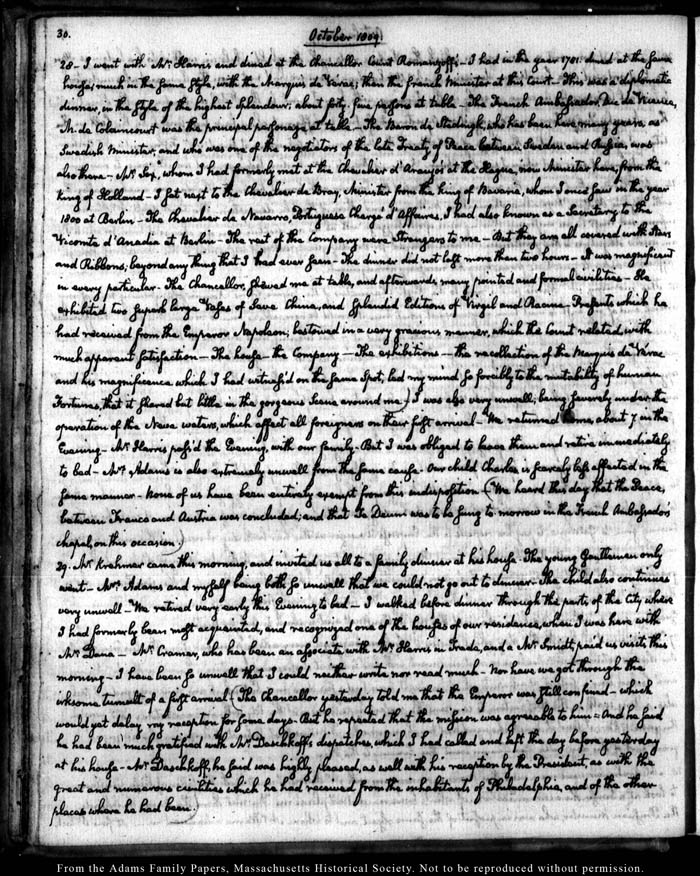 30.
October 1809
28- I went with Mr. Harris and dined at the Chancellor Count Romanzoff's - I had in the year 1781. dined at the same
house, much in the same style, with the Marquis de Verac; then the French Minister at this Court - This was a diplomatic
dinner, in the style of the highest splendour; about forty five persons at table - The French Ambassador, Duc de Vicence,
M. de Colaincourt was the principal personage at table - The Baron de Stedingk, who has been here many years, as
Swedish Minister, and who was one of the negotiators of the late Treaty of Peace between Sweden and Russia, was
also there - Mr. Six, whom I had formerly met at the Chevalier d'Araujo's at the Hague, now Minister here, from the
King of Holland - I sat next to the Chevalier de Bray, Minister from the King of Bavaria, whom I once saw in the year
1800 at Berlin - The Chevalier de Navarro, Portuguese Chargé d'Affaires, I had also known as a Secretary to the
Vicomte d'Anadia at Berlin - The rest of the Company were Strangers to me - But they are all covered with Stars
and Ribbons, beyond any thing that I had ever seen - The dinner did not last more than two hours - It was magnificent
in every particular - The Chancellor, shewed me at table, and afterwards, many pointed and formal civilities - He
exhibited two superb large Vases of Seve China, and splendid Editions of Virgil and Racine - Presents which he
had received from the Emperor Napoleon; bestowed in a very gracious manner, which the Count related, with
much apparent satisfaction - The house - the Company - The exhibitions - the recollection of the Marquis de Verac
and his magnificence, which I had witness'd on the same spot, led my mind so forcibly to the mutability of human
Fortunes, that it shared but little in the gorgeous scene around me) I was also very unwell; being severely under the
operation of the Neva waters, which affect all foreigners on their first arrival - We returned home, about 7 in the
Evening - Mr. Harris pass'd the Evening, with our family - But I was obliged to leave them and retire immediately
to bed - Mrs. Adams is also extremely unwell from the same cause. Our child Charles is scarcely less affected in the
same manner - None of us have been entirely exempt from this indisposition (We heard this day that the Peace,
between France and Austria was concluded; and that Te Deum was to be sung to-morrow in the French Ambassador's
chapel, on this occasion.)
29. Mr. Krehmer came this morning, and invited us all to a family dinner at his house - The young Gentlemen only
went - Mrs. Adams and myself being both so unwell that we could not go out to dinner - The child also continues
very unwell - We retired very early this Evening to bed - I walked before dinner through the parts of the City where
I had formerly been most acquainted, and recognized one of the houses of our residence, when I was here with
Mr. Dana - Mr. Cramer, who has been an associate with Mr. Harris in Trade, and a Mr. Smidt, paid us visits this
morning - I have been so unwell that I could neither write nor read much - Nor have we got through the
irksome tumult of a first arrival (The Chancellor yesterday told me that the Emperor was still confined - which
would yet delay my reception for some days - But he repeated that the mission was agreeable to him = And he said
he had been much gratified with Mr. Daschkoff's dispatches, which I had called and left the day before yesterday
at his house - Mr. Daschkoff, he said was highly pleased, as well with his reception by the President, as with the
great and numerous civilities which he had received from the inhabitants of Philadelphia, and of the other
places where he had been.)
From the Adams Family Papers, Massachusetts Historical Society. Not to be reproduced without permission.